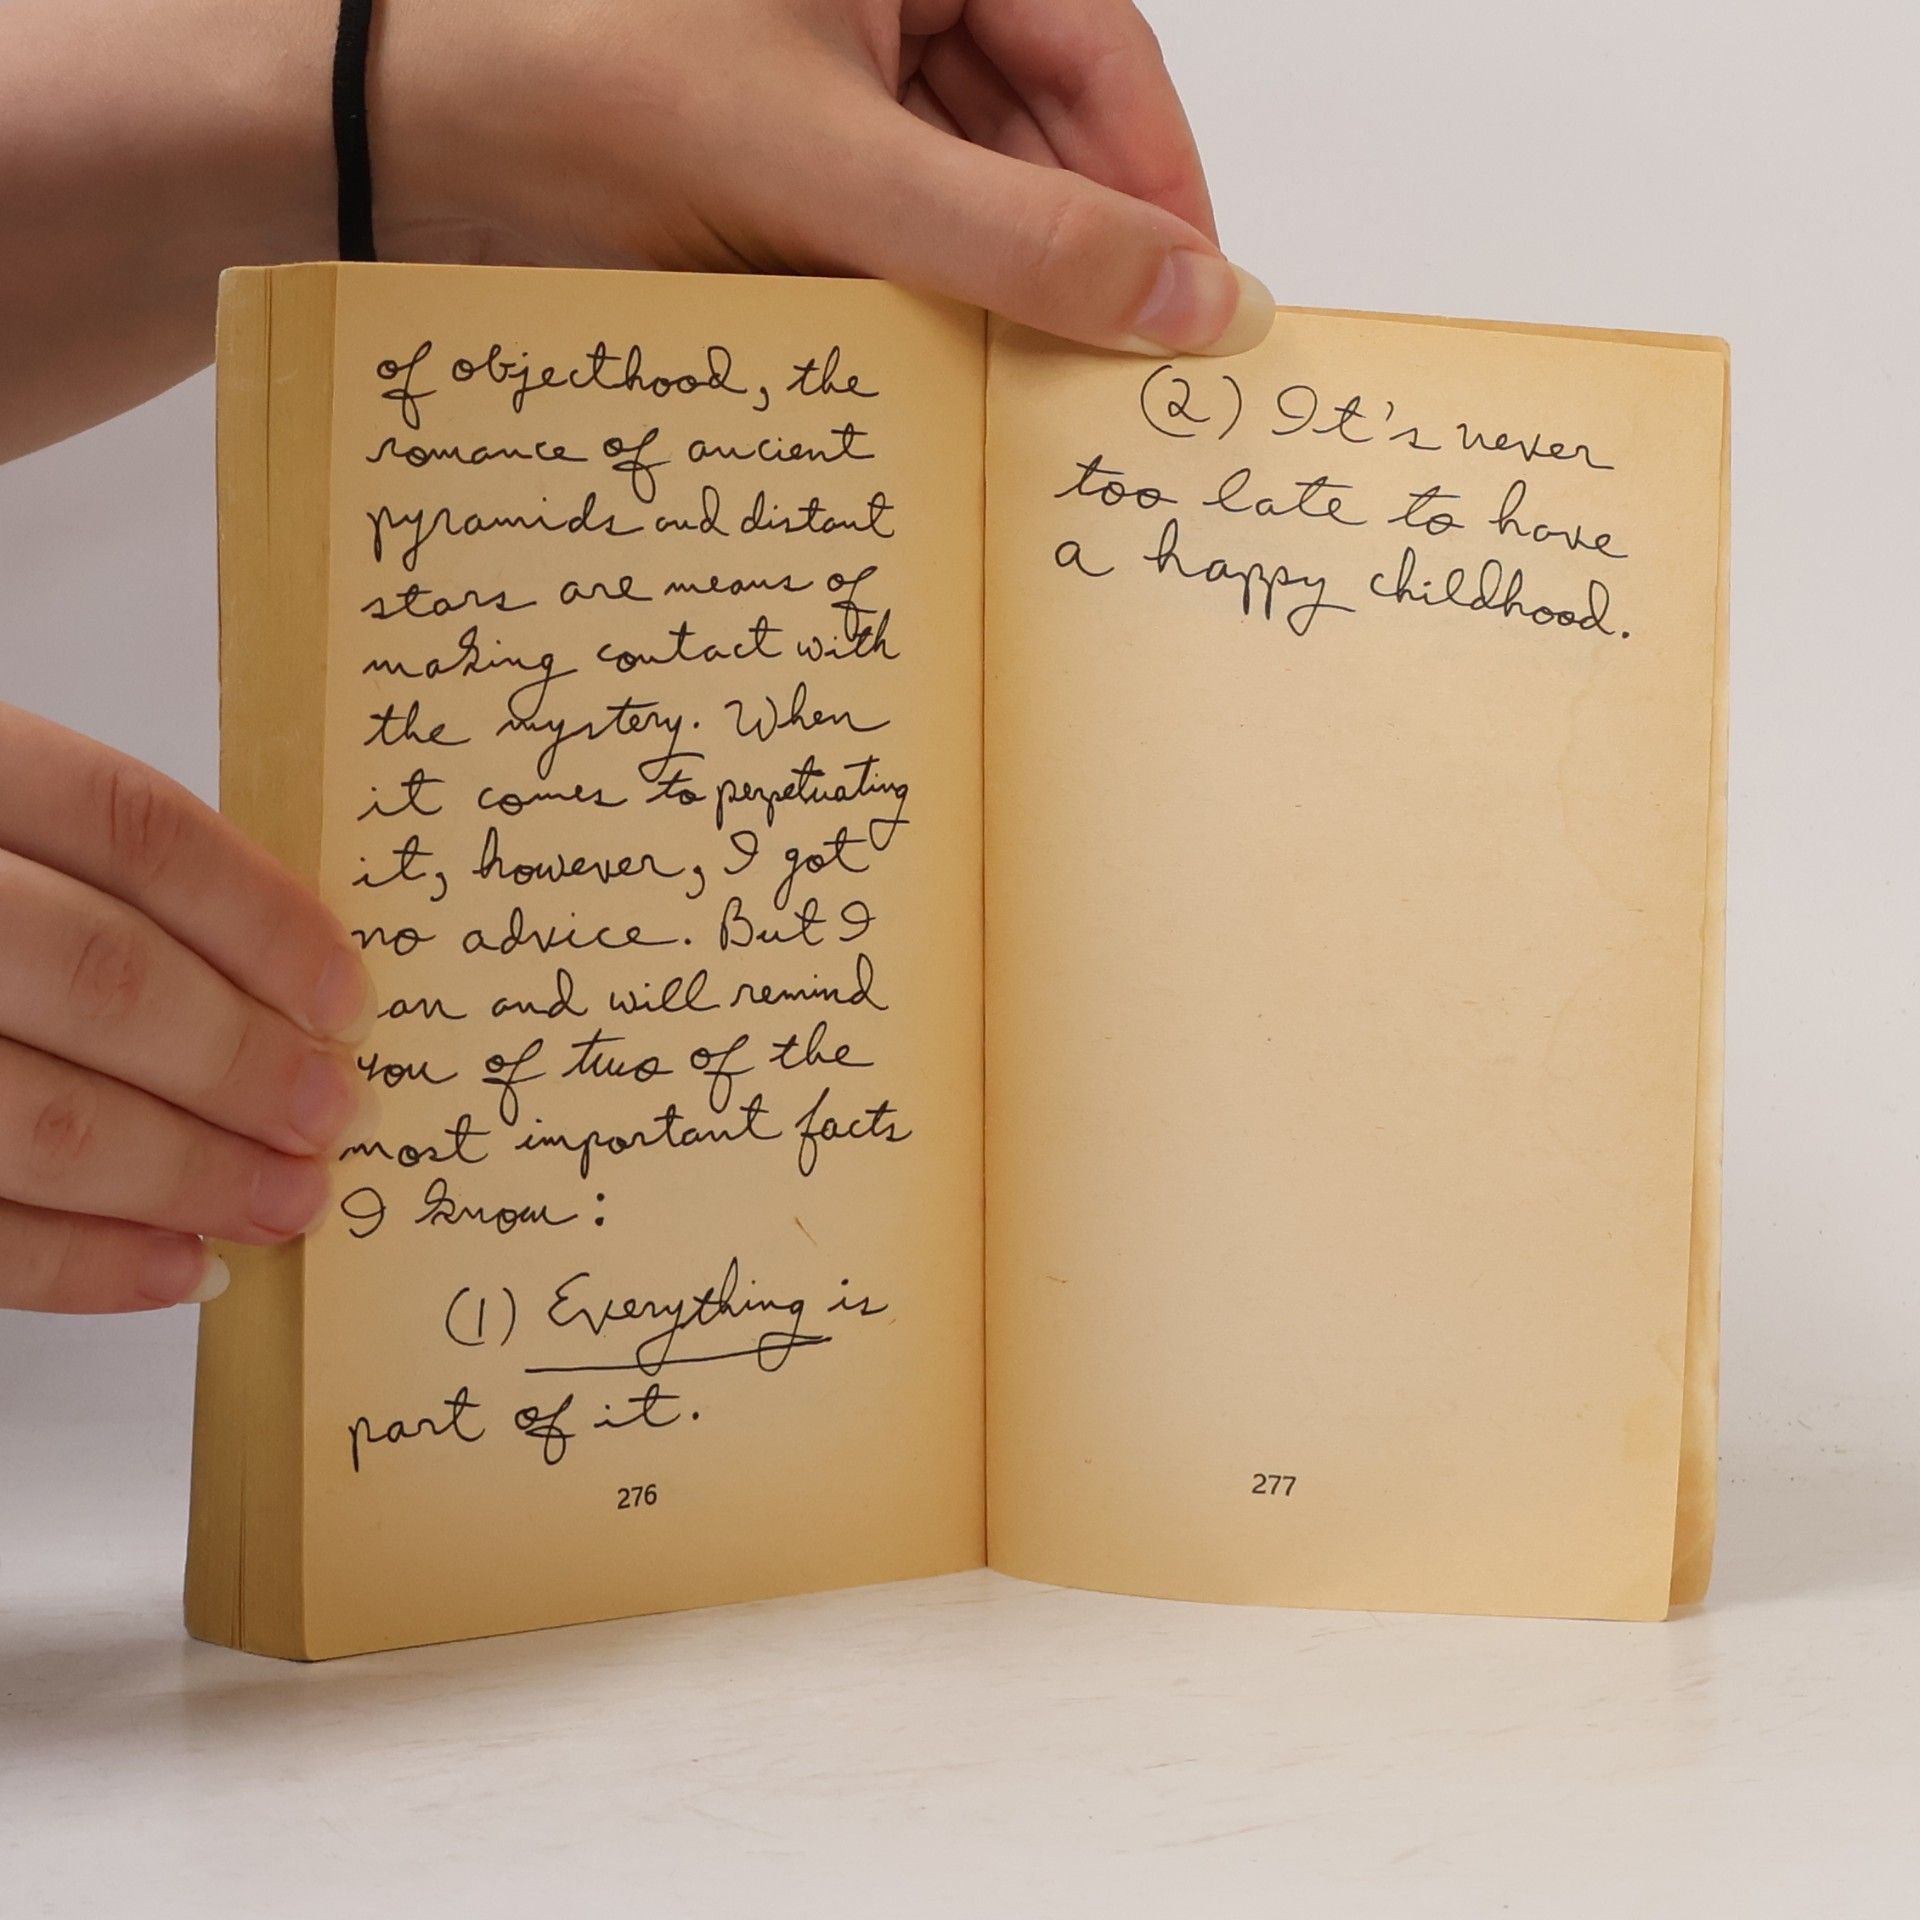 of objecthood, the
romance of ancient
pyramids and distant
stars are means of
making contact with
the mystery. When
it comes to perpetuating
it, however, I got
no advice. But I
an and will remind
you of two of the
most important facts
I know:
(1) Everything is
part of it.
276
(2) It's never
too late to have
a happy childhood.
277